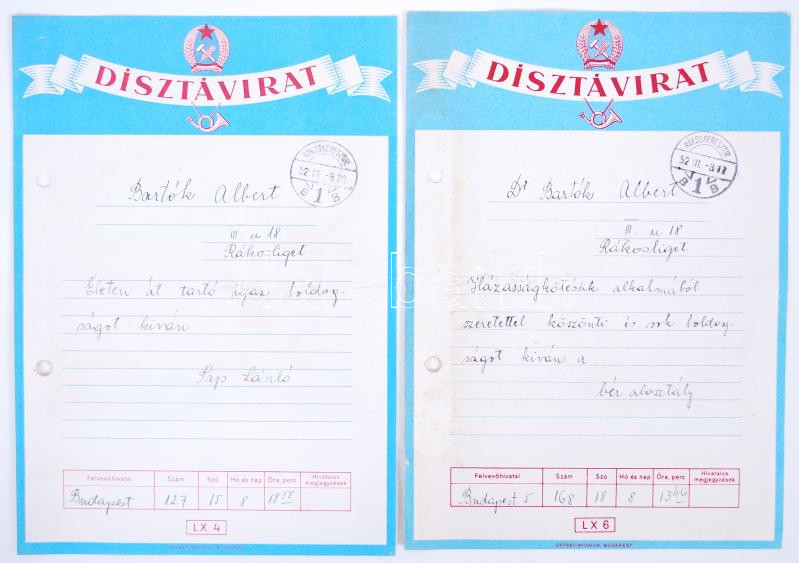 DÍSZTÁVIRAT
RÁKOSKERESZTÚR
52 III. -8
B 1 B
Bartók Albert
III. u 18
Rákosliget
Életen át tartó igaz boldog-
ságot kiván
Pap László
Felvevőhivatal Szám Szó Hó és nap Óra, perc Hivatalos megjegyzések
Budapest 127 15 8 18 58
LX 4
DÍSZTÁVIRAT
RÁKOSKERESZTÚR
52 III. -8
B 1 B
Dr Bartók Albert
III. u 18
Rákosliget
Házasságkötésük alkalmából
szeretettel köszönti és sok boldog-
ságot kiván a
bér alosztály
Felvevőhivatal Szám Szó Hó és nap Óra, perc Hivatalos megjegyzések
Budapest 5 168 18 8 13 46
LX 6
OFFSET-NYOMDA, BUDAPEST